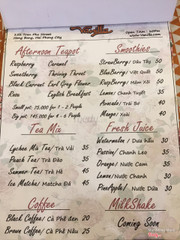 Open Time: 
Afternoon Teapot
Raspberry Caramel
Cranberry Thriving Throat
Black Currant Earl Grey Flower
Rum English Breakfast
Small pot: 75.000 for 1 - 2 People
Big pot: 145.000 for 4 - 6 People
Tea Mix
Lychee Mix Tea/ Trà Vải 35
Peach Tea/ Trà Đào 35
Summer Tea/ Trà Hè 45
Ice Matcha/ Matcha Đá 45
Coffee
Black Coffee/ Cà Phê đen 20
Brown Coffee/ Cà Phê Nâu 25
Smoothies
StrawBerry/ Dâu Tây 50
BlueBerry/ Việt Quất 50
RaspBerry/ Mâm Xôi 50
Lemon/ Chanh Tuyết 35
Avocado/ Trái Bơ 40
Mango/ Xoài 40
Fresh Juice
Watermelon / Dưa hấu 35
Passion/ Chanh Leo 35
Orange/ Nước Cam 35
Lemon/ Nước Chanh 30
PineApple/ Nước Dứa 30
MilkShake
Coming Soon